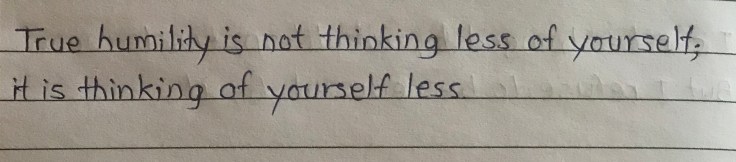 True humility is not thinking less of yourself;
it is thinking of yourself less.